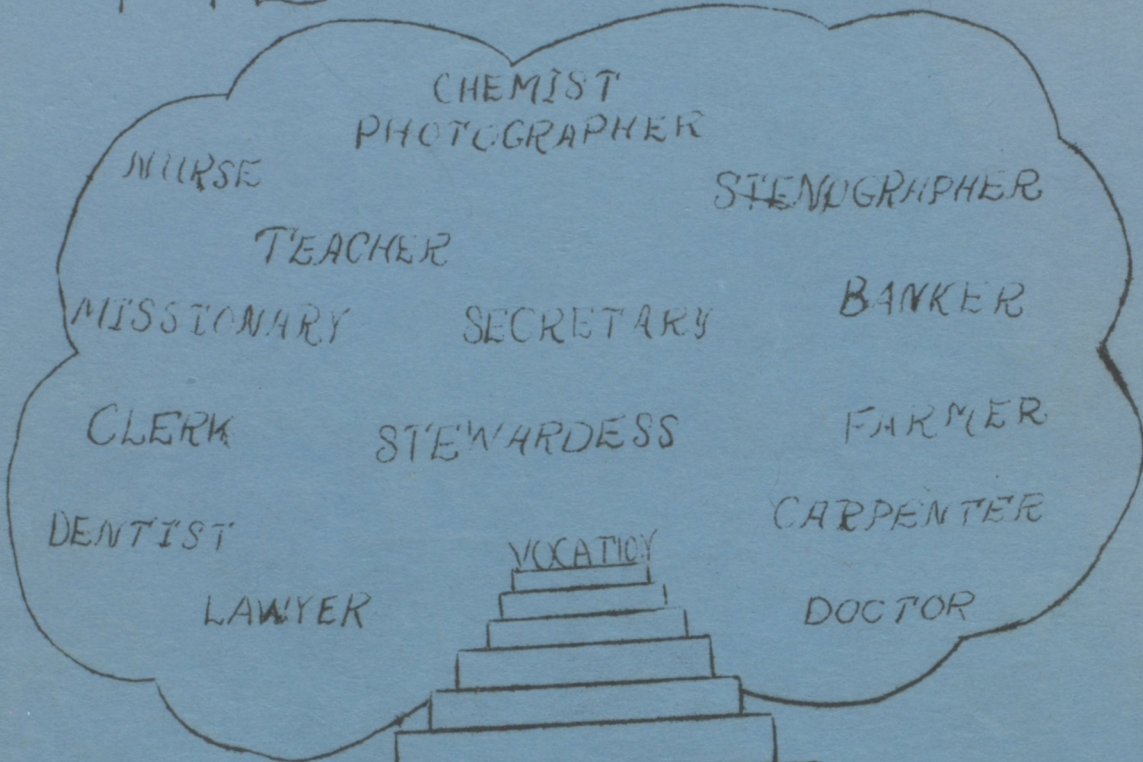 CHEMIST
PHOTOGRAPHER
NURSE
STENOGRAPHER
TEACHER
BANKER
MISSIONARY
SECRETARY
CLERK
STEWARDESS
FARMER
DENTIST
CARPENTER
VOCATION
LAWYER
DOCTOR